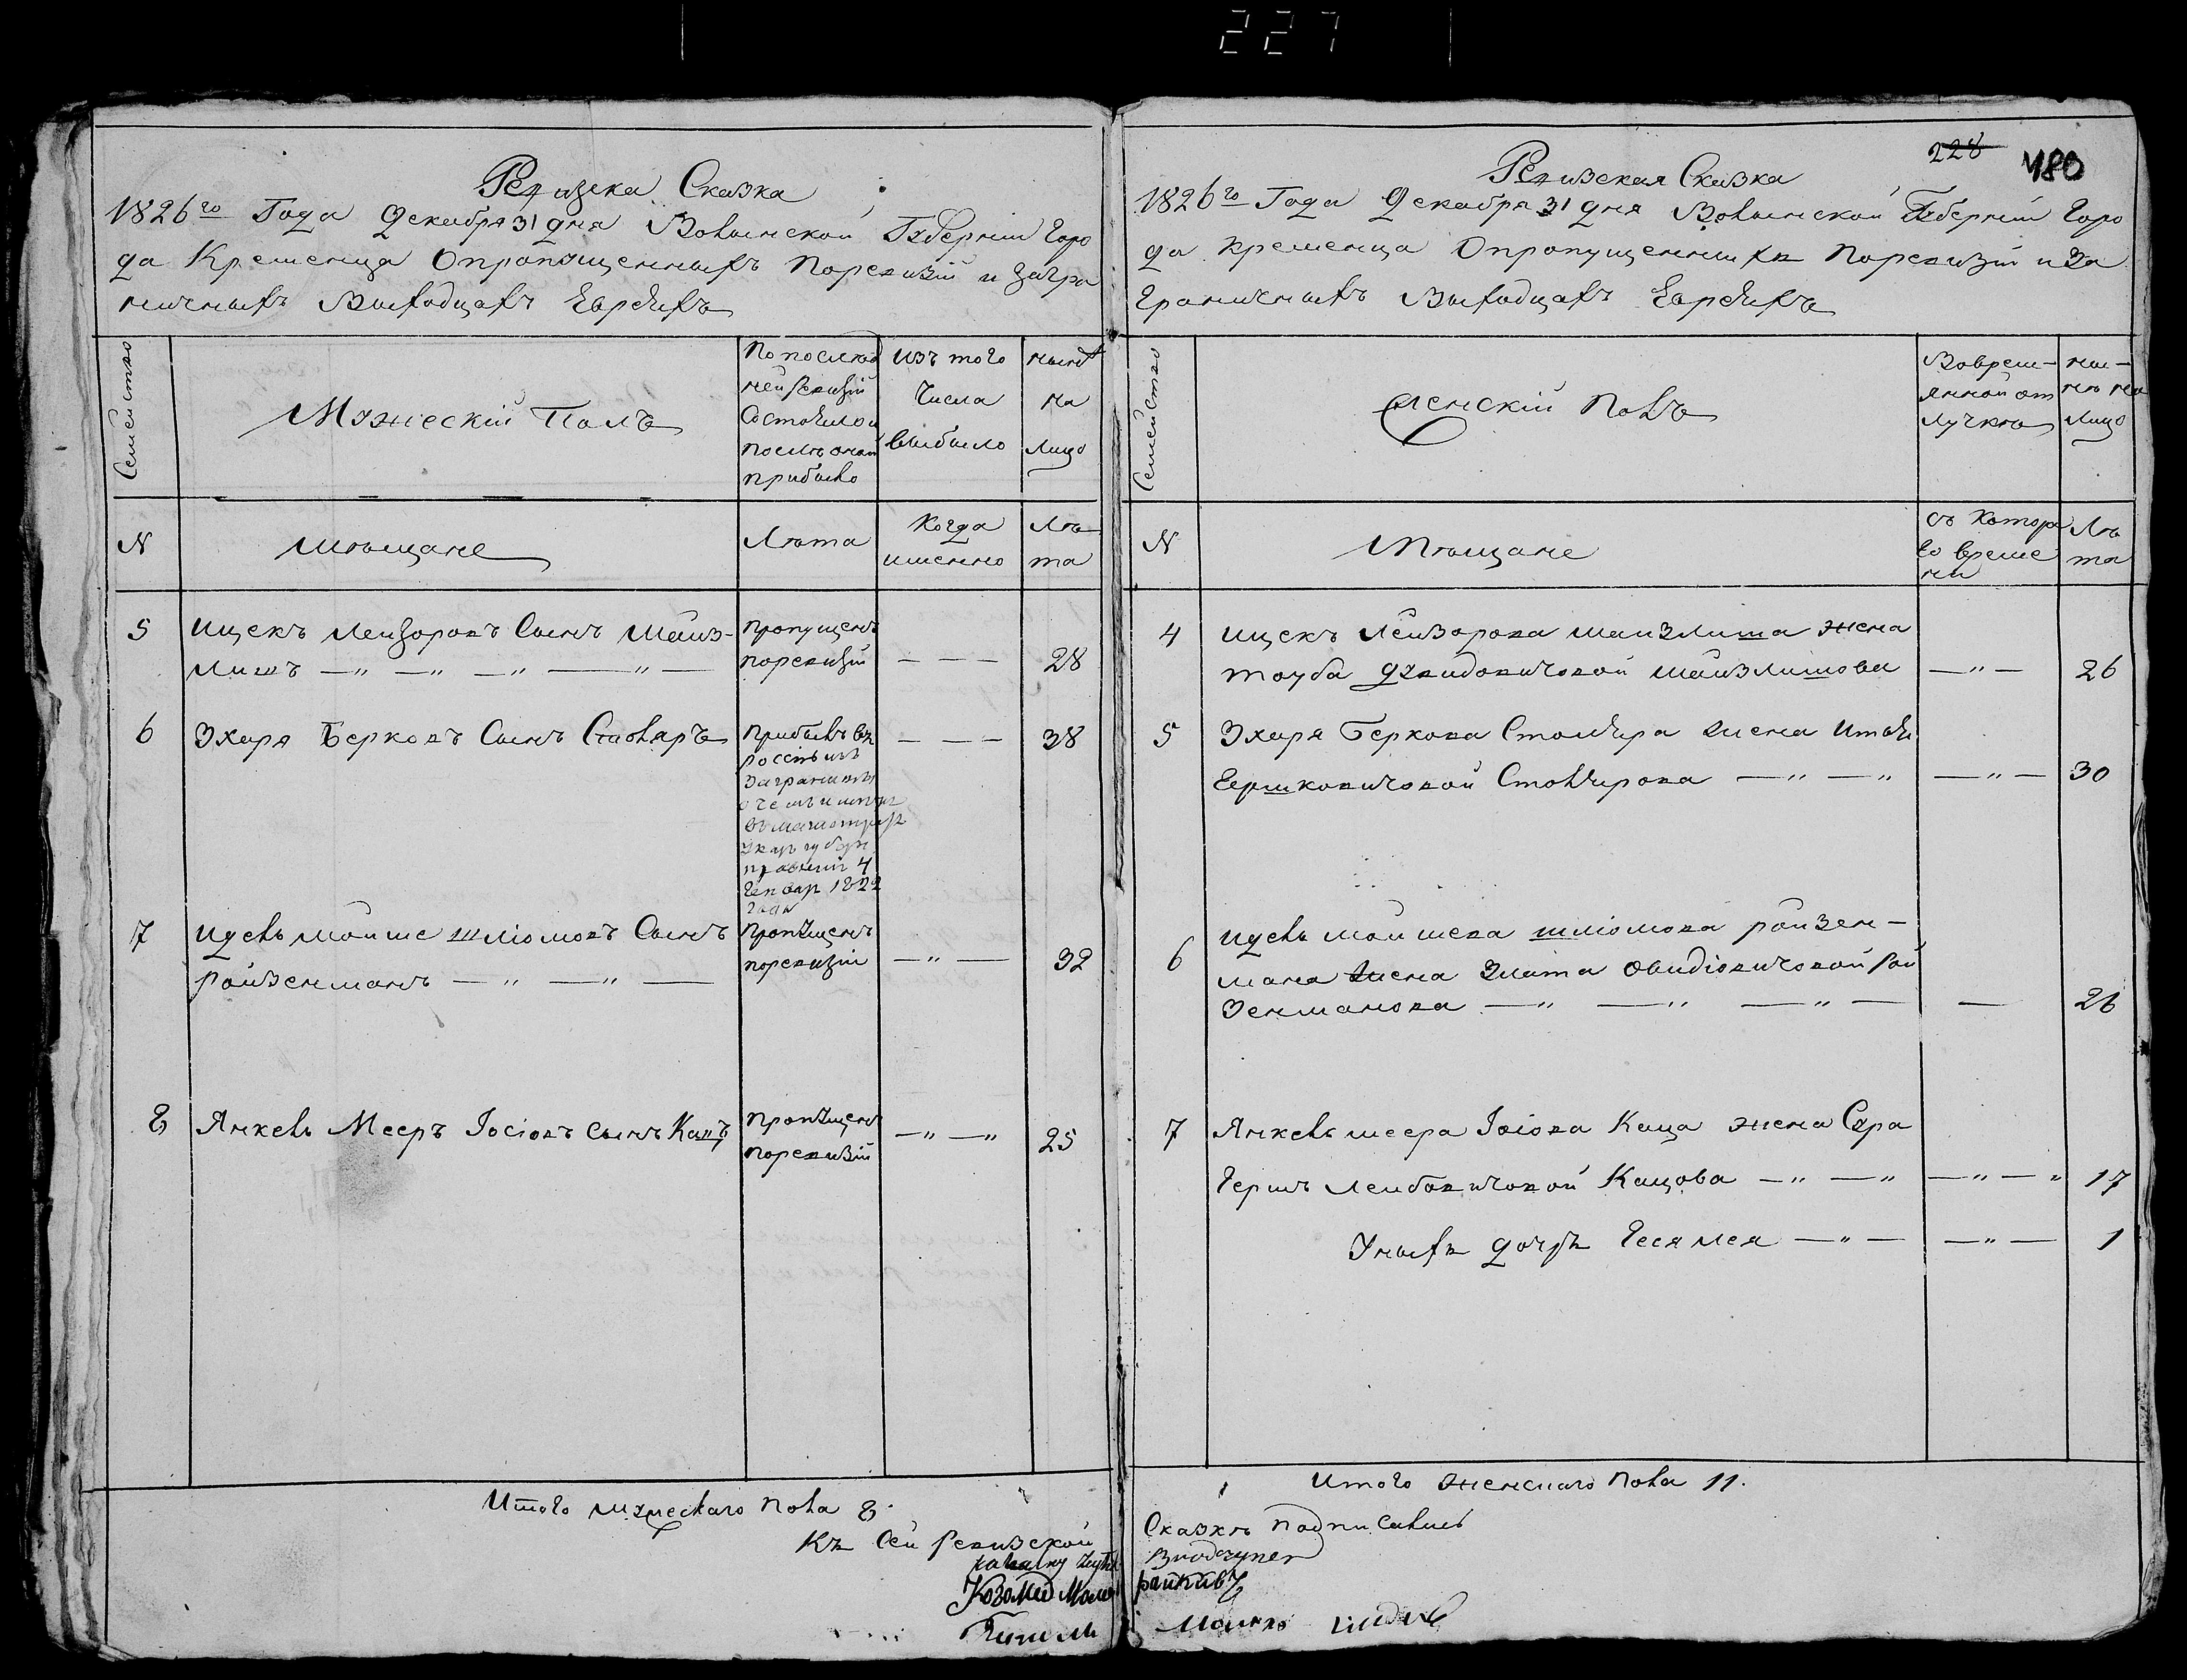 227
Ревизска Сказка
1826го Года Декабря 31 дня Волынской Губернии Горо
да Кременца Опропущенныхъ Поревизіи и загра
ничныхъ Выходцахъ Евреяхъ
Семейство
Мужескій Полъ
По послед
ней ревизіи
Состояло и
после оной
прибыло
Изъ того
Числа
выбыло
ныне
на
лицо
N
Мѣщане
Лѣта
Когда
именно
Лѣ
та
5
Ицекъ Лейзоровъ Сынъ Майз-
лишъ — " — " — " — " —
пропущенъ
поревизіи
— — —
28
6
Эхиря Берковъ Сынъ Столяръ
Прибылъ въ
россію изъ
Заграницы
правленія 4
Генвар 1822
года
— — —
38
7
Идель Мойше Шліомовъ Сынъ
Ройзенманъ — " — " —
пропущенъ
поревизіи
— " —
32
8
Янкель Мееръ Іосіовъ сынъ Кацъ
пропущенъ
поревизіи
— " — "
25
Итого мужескаго пола 8.
Къ Сей ревизской
228 480
Ревизская Сказка
1826го Года Декабря 31 дня Волынской Губерніи Горо
да Кременца Опропущенныхъ Поревизіи и За
Граничныхъ Выходцахъ Евреяхъ
Семейство
Женскій Полъ
Вовреме-
нной от
лучкѣ
ны-
нѣ на
лицо
N
Мѣщане
съ Котора
го време
ни
Лѣ
та
4
Ицекъ Лейзорова Майзлиша жена
Тауба Дувидовичовой Майзлишова
— " —
26
5
Эхиря Беркова Столяра жена Итля
Гершковичовой Столярова — " — "
— " —
30
6
Идель Мойшева Шліомова Ройзен-
мана жена Злата Овидіовичовой Рой
Зенманова — " — " — " —
—
26
7
Янкель Меера Іосіова Каца жена Сура
Гершъ Лейбовичовой Кацова — " — "
— " — "
17
Уныхъ дочрь Геся Лея — " —
— " —
1
Итого женскаго пола 11.
Сказкѣ подписались